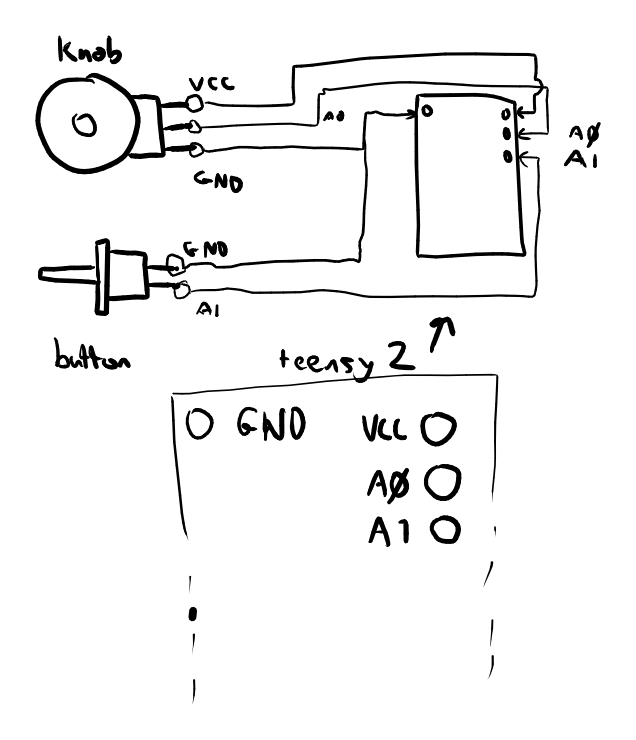 Knob
VCC
AØ
GND
AØ
A1
GND
A1
button
teensy 2
GND VCC
AØ
A1